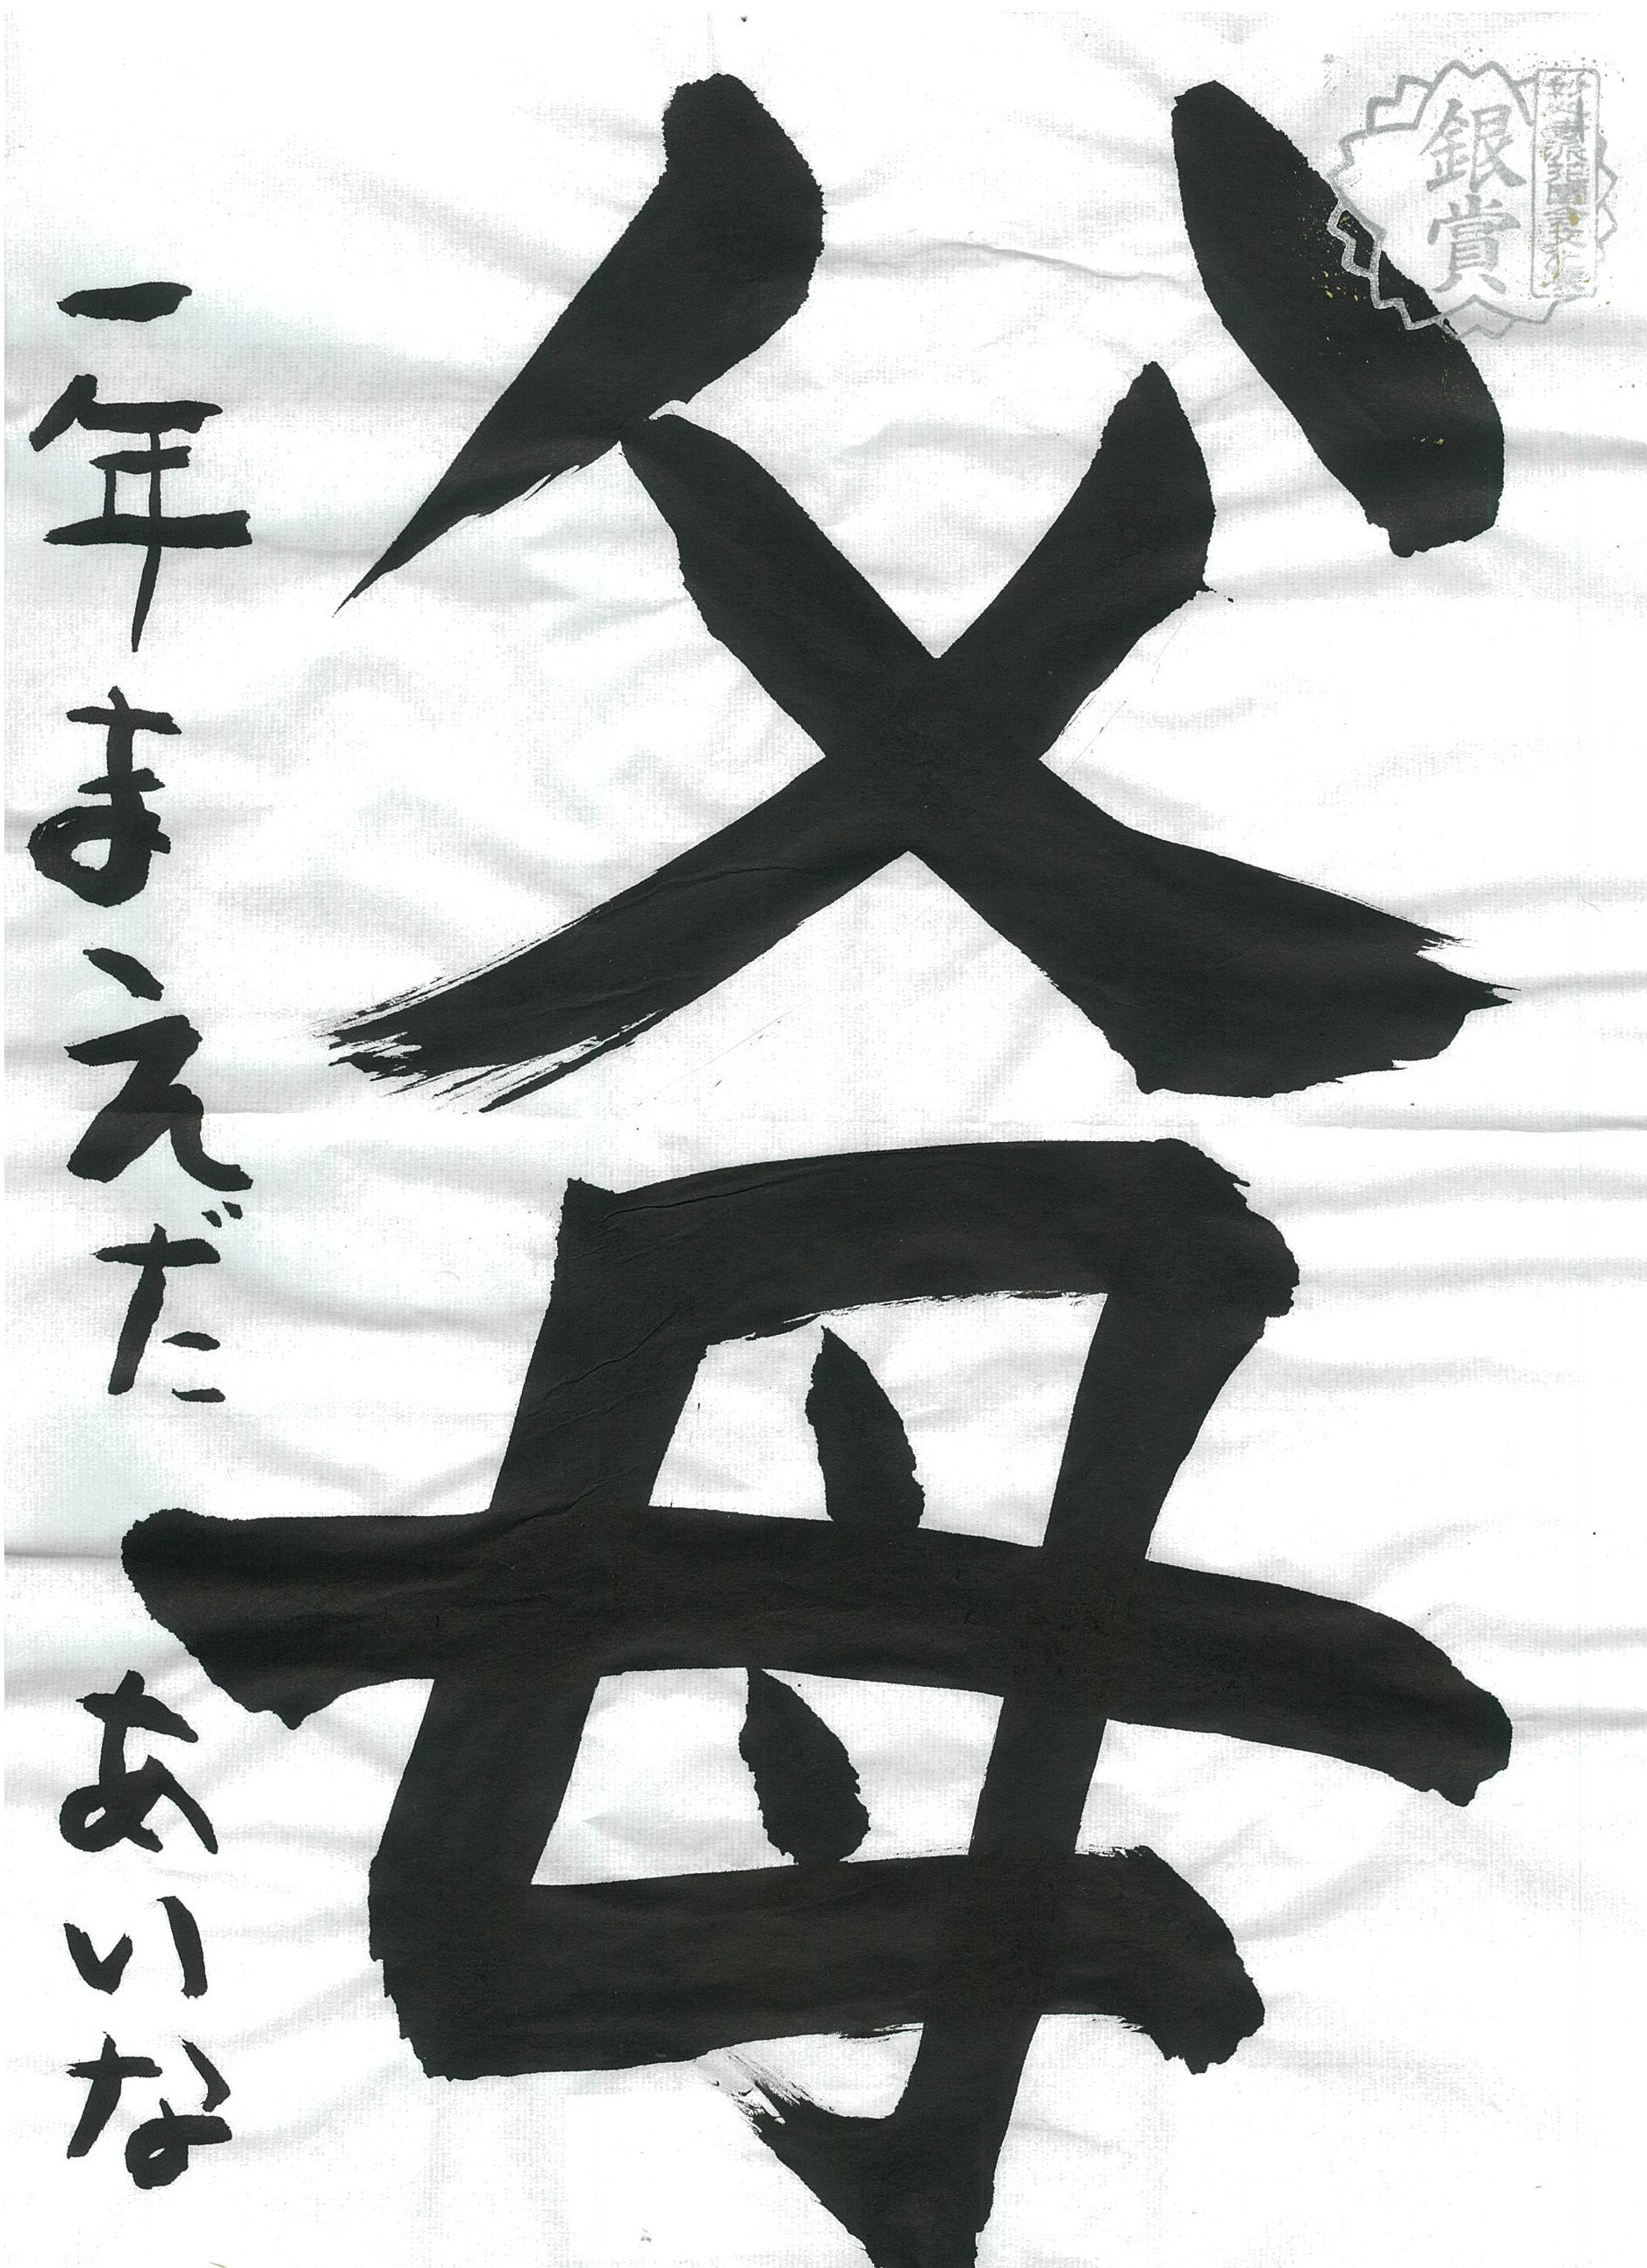 銀賞
父母
一年 まえだ あいな